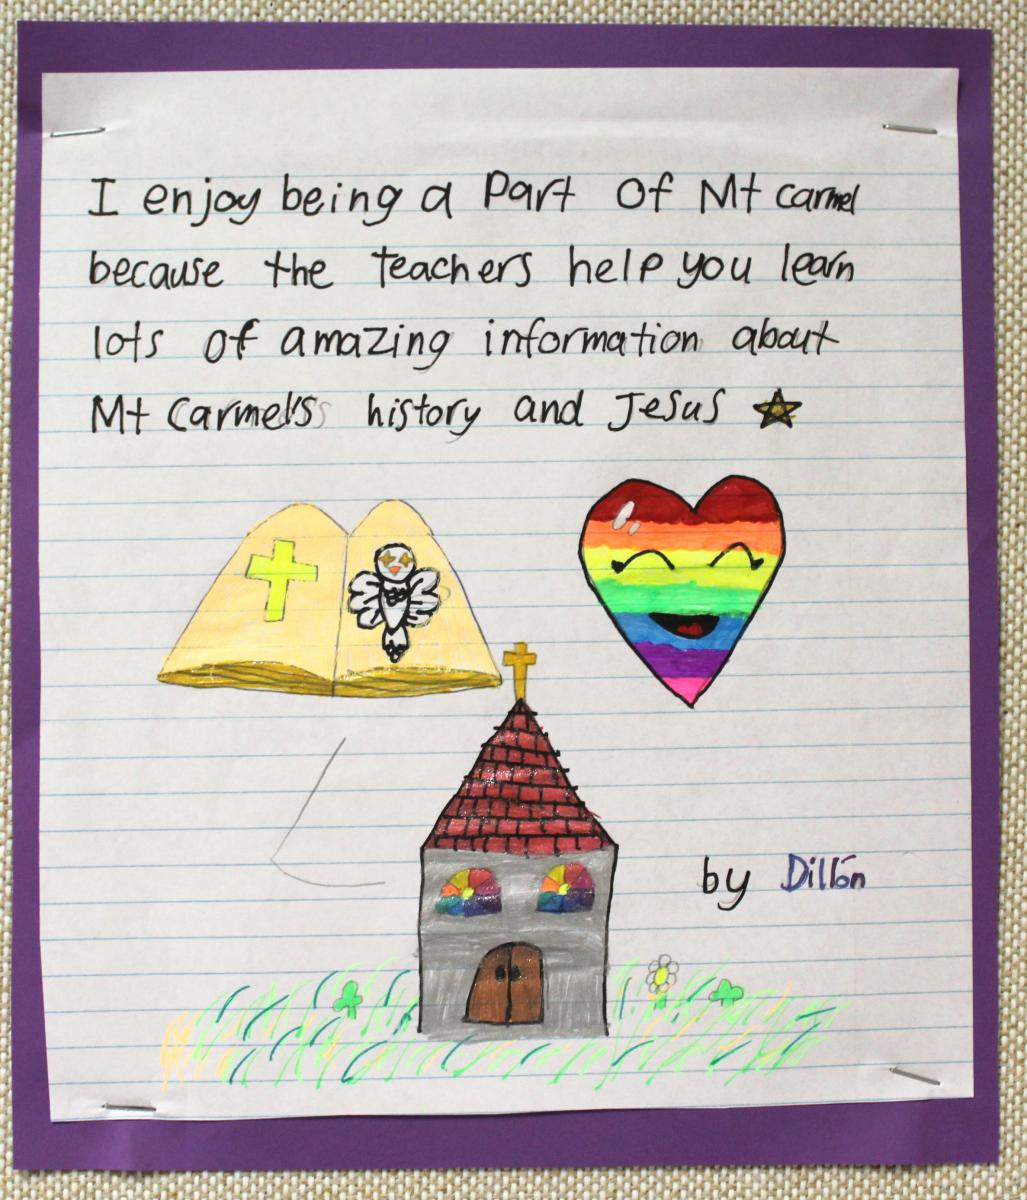 I enjoy being a Part of Mt carmel
because the teachers help you learn
lots of amazing information about
Mt Carmel's history and Jesus
by Dillon